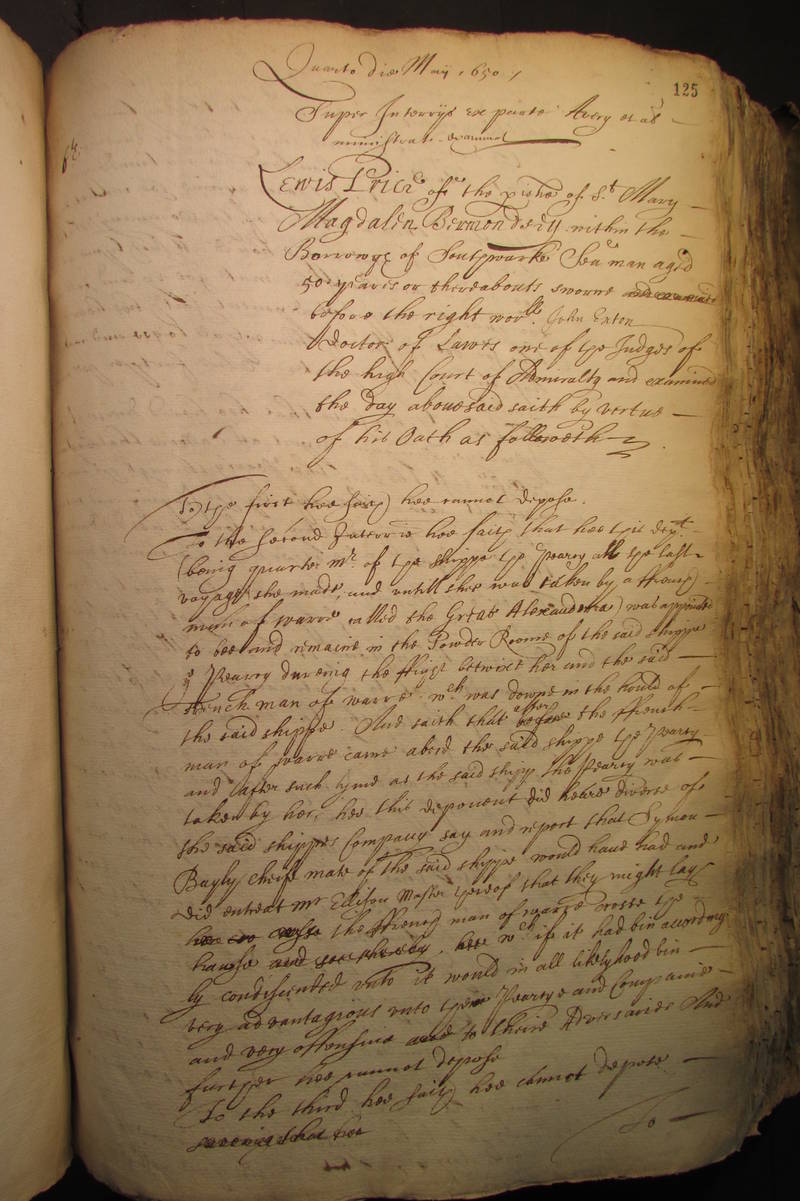 125
Quarto die Maij 1650 /
Super Interrys ex parte Avery et al
ministrat. examinat
Lewis Price of the pishe of St. Mary
Magdalen Bermondsey within the
Borrowge of Southwarke Seaman aged
50 yeares or thereabouts sworne and examined
before the right worll. John Exton
Doctor of Lawes one of the Judges of
the high Court of Admiralty and examined
the day abovesaid saith by vertue
of his Oath as followeth
To the first hee saith hee cannot depose.
To the second Interrie hee saith that hee this dept.
(being quarter mr. of the shippe the Pearry all the last
voyage she made, and untill shee was taken by a ffrench
man of warre called the Great Alexandria) was appointed
to bee and remaine in the Powder Roome of the said shippe
ye Pearry dureing the ffight betwixt her and the said
ffrench man of warre. wch. was downe in the hould of
the said shippe. And saith that after before the ffrench
man of warre came abord the said shippe the Pearry
and after such tyme as the said shipp the Pearry was
taken by her, hee this deponent did heare diverse of
the said shippes Company say and report that Symon
Bayly cheife mate of the said shippe would have had and
did entreat mr Ellison Master thereof that they might lay
the ffrench man of warre crosse the
hawse and soe thereby, wch if it had bin according
ly condiscended unto it would in all likelyhood bin
very advantagious unto the Pearrye and Companie
and very offensive and to theire Adversaries And
further hee cannot depose
To the third hee saith hee cannot depose
saveing that hee
To